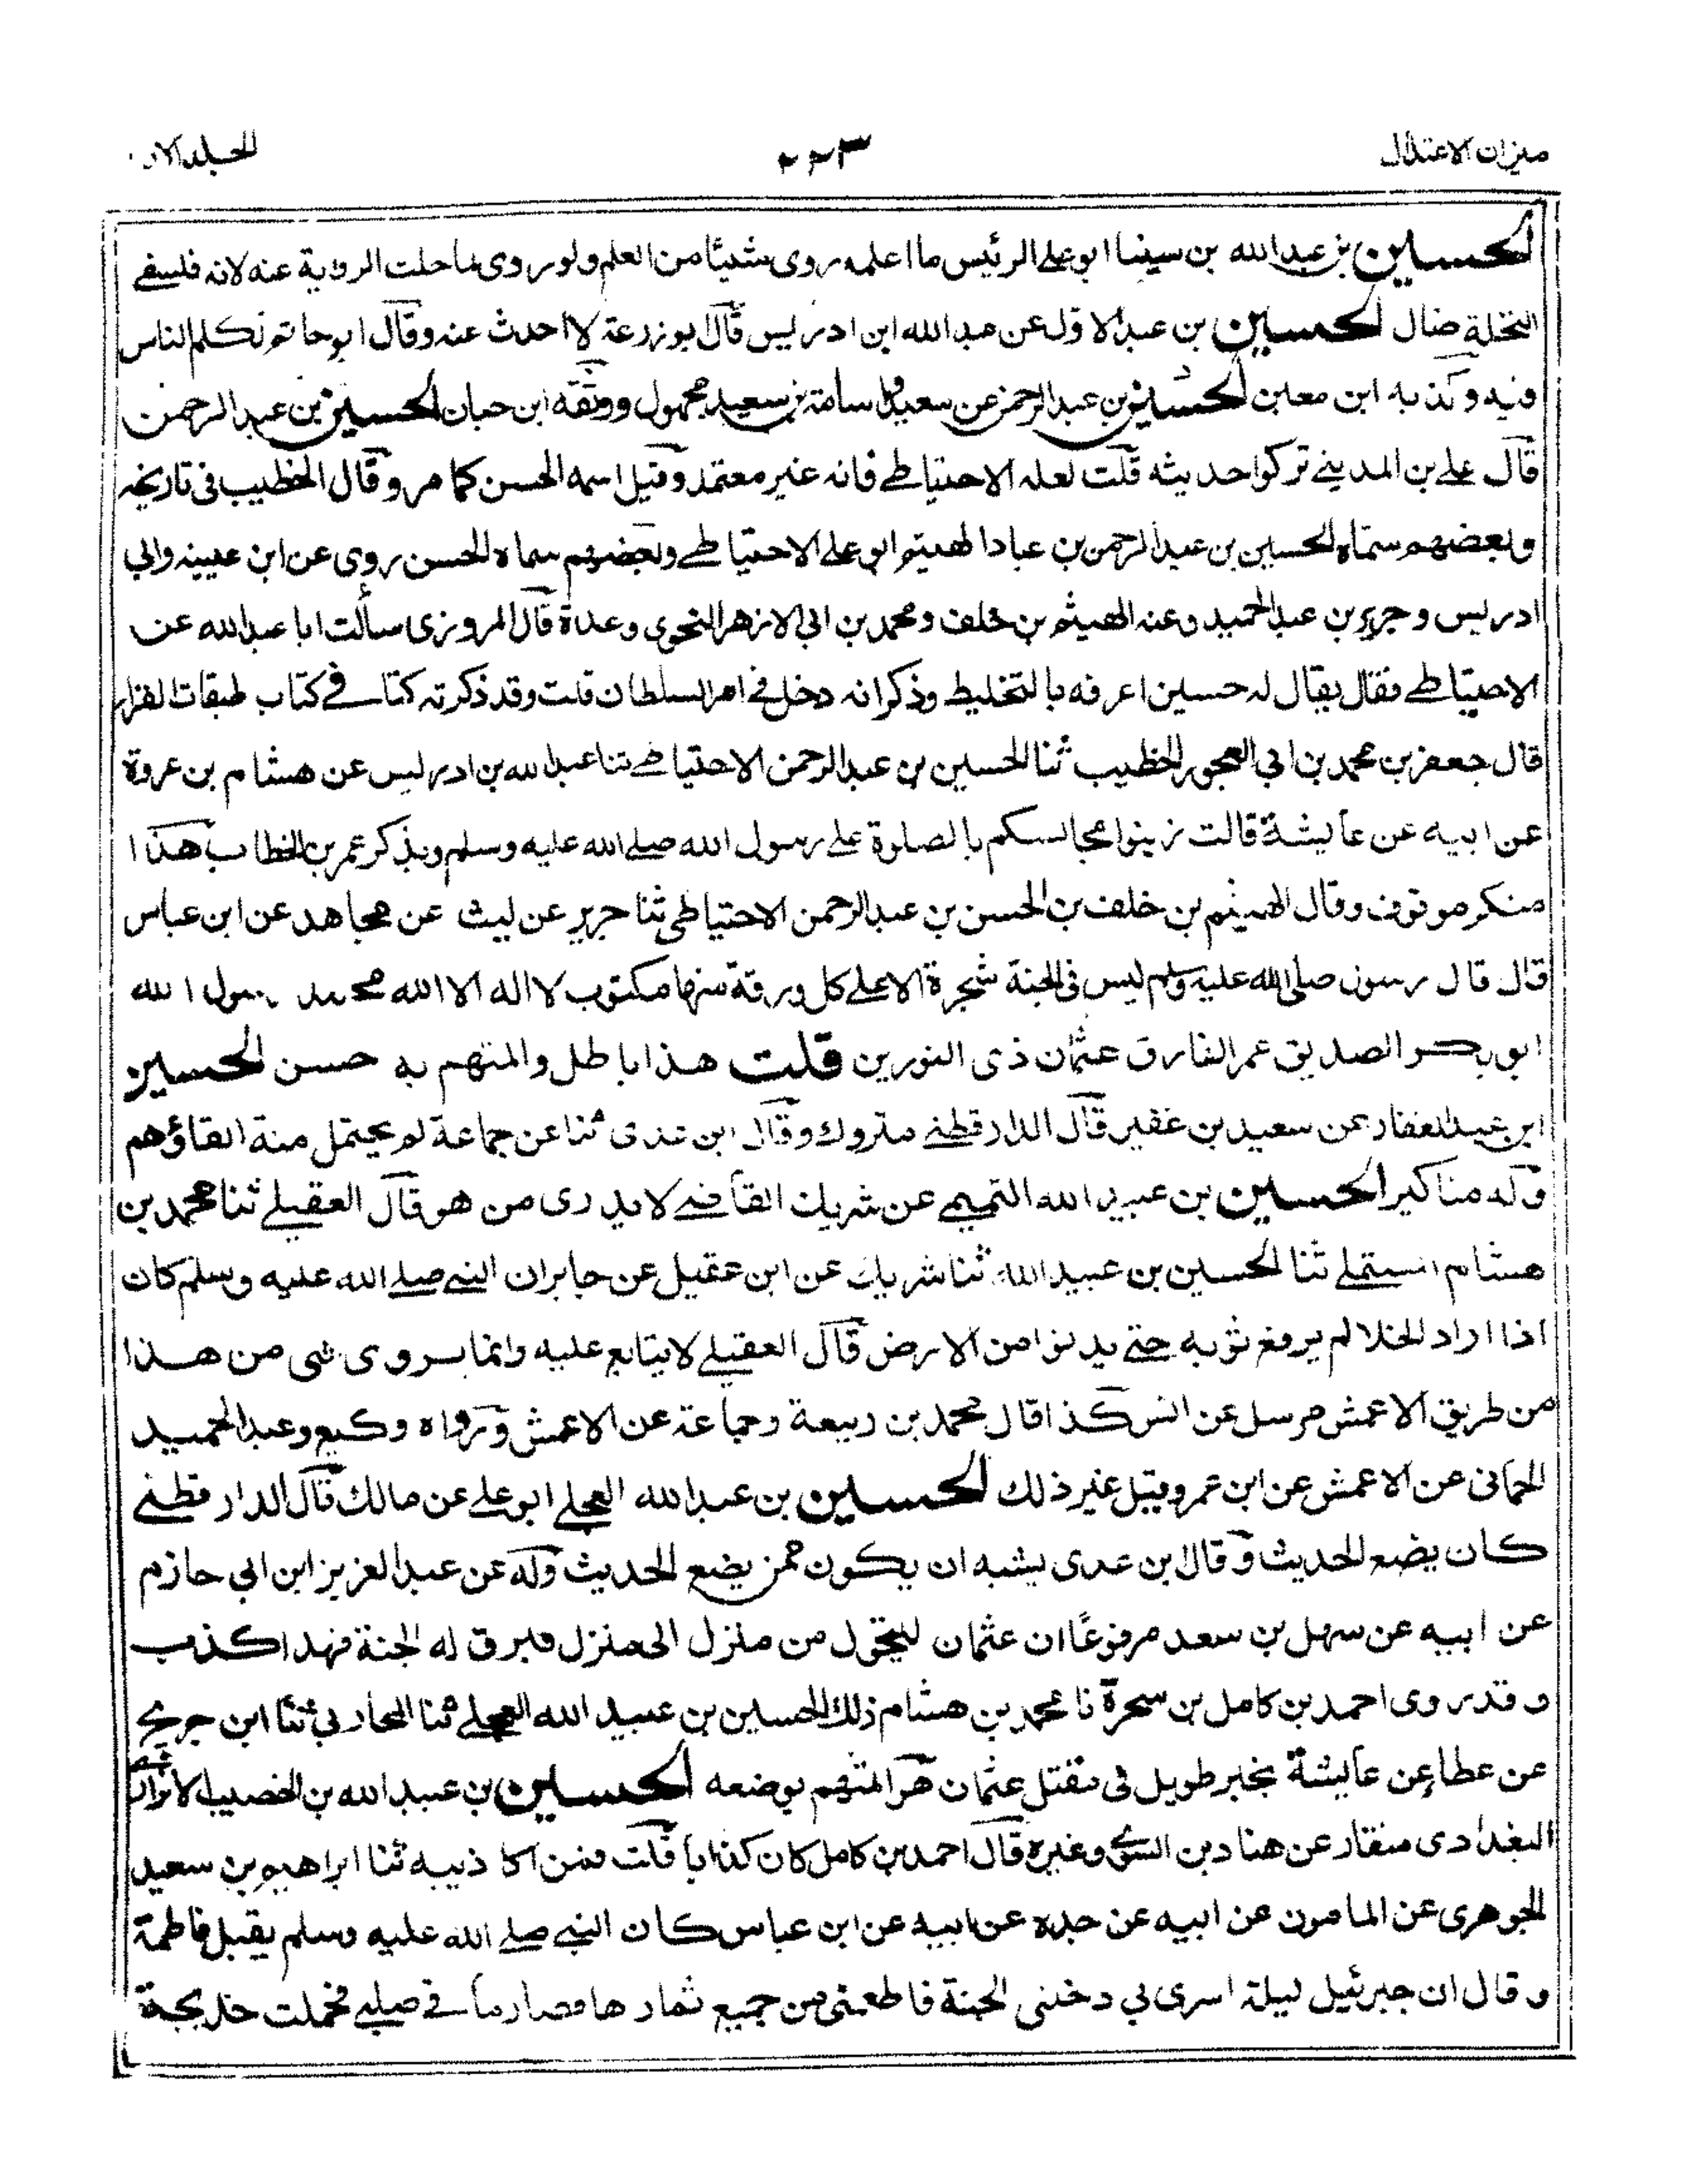 ميزان الاعتدال ٢٢٣ الجلد الاو
الحسين بن عبدالله بن سينا ابو على الرئيس ما اعلمه روى شيئا من العلم ولو روى ما حلت الرواية عنه لانه فلسفے
النحلة ضال الحسين بن عبد الاول عن عبد الله ابن ادريس قال ابو زرعة لا احدث عنه وقال ابو حاتم تكلم الناس
فيه وكذبه ابن معين الحسين بن عبد الرحمن عن سعيد اسامة بن سعيد مجهول ووثقه ابن حبان الحسين بن عبد الرحمن
قال علے بن المدينے تركوا حديثه قلت لعله الاحتياطے فانه غير معتمد وقيل اسمه الحسن كما مر وقال الخطيب فى تاريخه
وبعضهم سماه الحسين بن عبد الرحمن بن عباد الهيتم ابو على الاحتياطے وبعضهم سماه الحسن روى عن ابن عيينه وابي
ادريس وجرير بن عبد الحميد وعنه الهيثم بن خلف ومحمد بن ابي الازهر النحوى وعدة قال المروزى سألت ابا عبد الله عن
الاحتياطے فقال يقال له حسين اعرفه بالتخليط وذكر انه دخل فے امر السلطان قلت وقد ذكرته كتا فے كتاب طبقات القراء
قال جعفر بن محمد بن ابي العجوز الخطيب ثنا الحسين بن عبد الرحمن الاحتياطے ثنا عبد الله بن ادريس عن هشام بن عروة
عن ابيه عن عايشة قالت زينوا مجالسكم بالصلوة على رسول الله صلے الله عليه وسلم وبذكر عمر بن الخطاب هذا
منكر موقوف وقال الهيثم بن خلف بن الحسن بن عبد الرحمن الاحتياطى ثنا جرير عن ليث عن مجاهد عن ابن عباس
قال قال رسول صلى الله عليه وسلم ليس فى الجنة شجرة الا على كل ورقة منها مكتوب لا اله الا الله محمد رسول الله
ابو بكر الصديق عمر الفارق عثمان ذى النورين قلت هذا باطل والمتهم به حسن الحسين
ابن عبد الغفار عن سعيد بن عفير قال الدارقطنے متروك وقال ابن عدى ثنا عن جماعة لم يحتمل منه القاؤهم
وله مناكير الحسين بن عبيد الله التميمے عن شريك القاضے لا يدرى من هو قال العقيلے ثنا محمد بن
هشام المستملے ثنا الحسين بن عبيد الله ثنا شريك عن ابن عقيل عن جابر ان النبے صلے الله عليه وسلم كان
اذا اراد الخلا لم يرفع ثوبه حتے يدنوا من الارض قال العقيلے لا يتابع عليه وانما يروى شى من هذا
من طريق الاعمش مرسل عن انس كذا قال محمد بن ربيعة وجماعة عن الاعمش ورواه وكيع وعبد الحميد
الحمانى عن الاعمش عن ابن عمر وقيل غير ذلك الحسين بن عبد الله العجلے ابو على عن مالك قال الدارقطنے
كان يضع الحديث وقال ابن عدى يشبه ان يكون ممن يضع الحديث وله عن عبد العزيز ابن ابي حازم
عن ابيه عن سهل بن سعد مرفوعًا ان عثمان ليتحول من منزل الى منزل فيبرق له الجنة فهذا كذب
وقد روى احمد بن كامل بن سجرة نا محمد بن هشام ذلك الحسين بن عبيد الله العجلے ثنا المحاربي ثنا ابن جريج
عن عطا عن عايشة بخبر طويل فى مقتل عثمان هو المتهم بوضعه الحسين بن عبيد الله بن الخصيب الابزارى
البغدادى منقار عن هناد بن السرى وغيره قال احمد بن كامل كان كذابا قلت فمن اكاذيبه ثنا ابراهيم بن سعيد
الجوهرى عن المامون عن ابيه عن جده عن ابيه عن ابن عباس كان النبے صلے الله عليه وسلم يقبل فاطمة
وقال ان جبرئيل ليلة اسرى بي دخلنى الجنة فاطعمنى من جميع ثمارها فصار ما فے صلبے فحملت خديجة